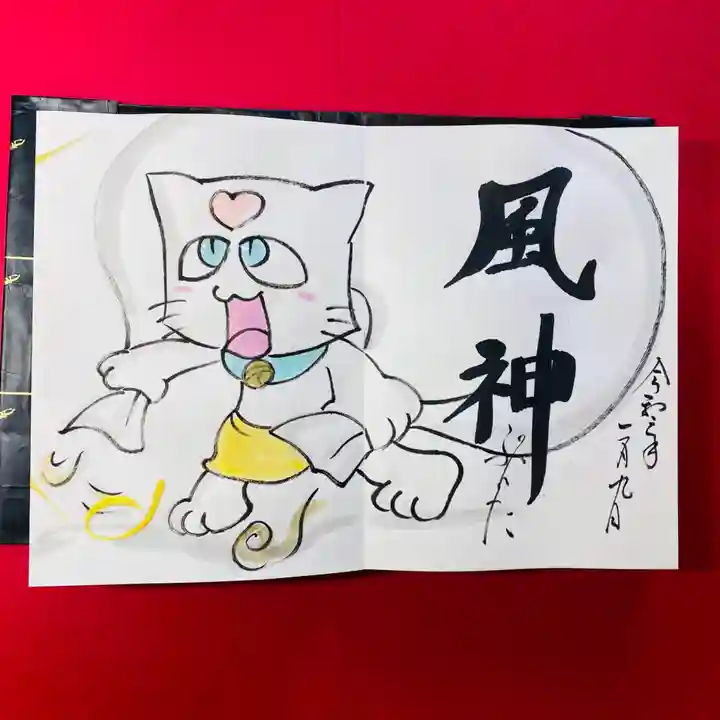 令和三年
一月九日
風神